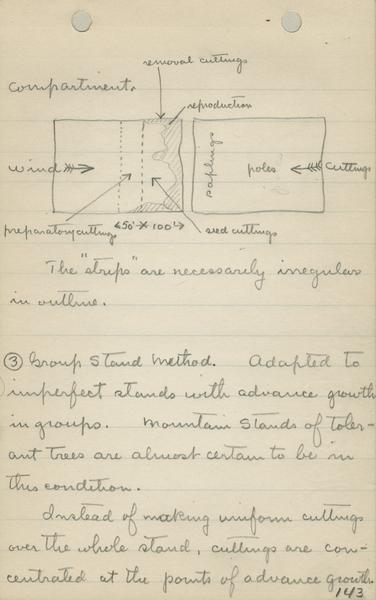 removal cuttings
compartment.
reproduction
wind
saplings
poles
cuttings
preparatory cuttings
50' × 100'
seed cuttings
The "strips" are necessarily irregular
in outline.
③ Group Stand Method. Adapted to
imperfect stands with advance growth
in groups. Mountain Stands of toler-
ant trees are almost certain to be in
this condition.
Instead of making uniform cuttings
over the whole stand, cuttings are con-
centrated at the points of advance growth.
143